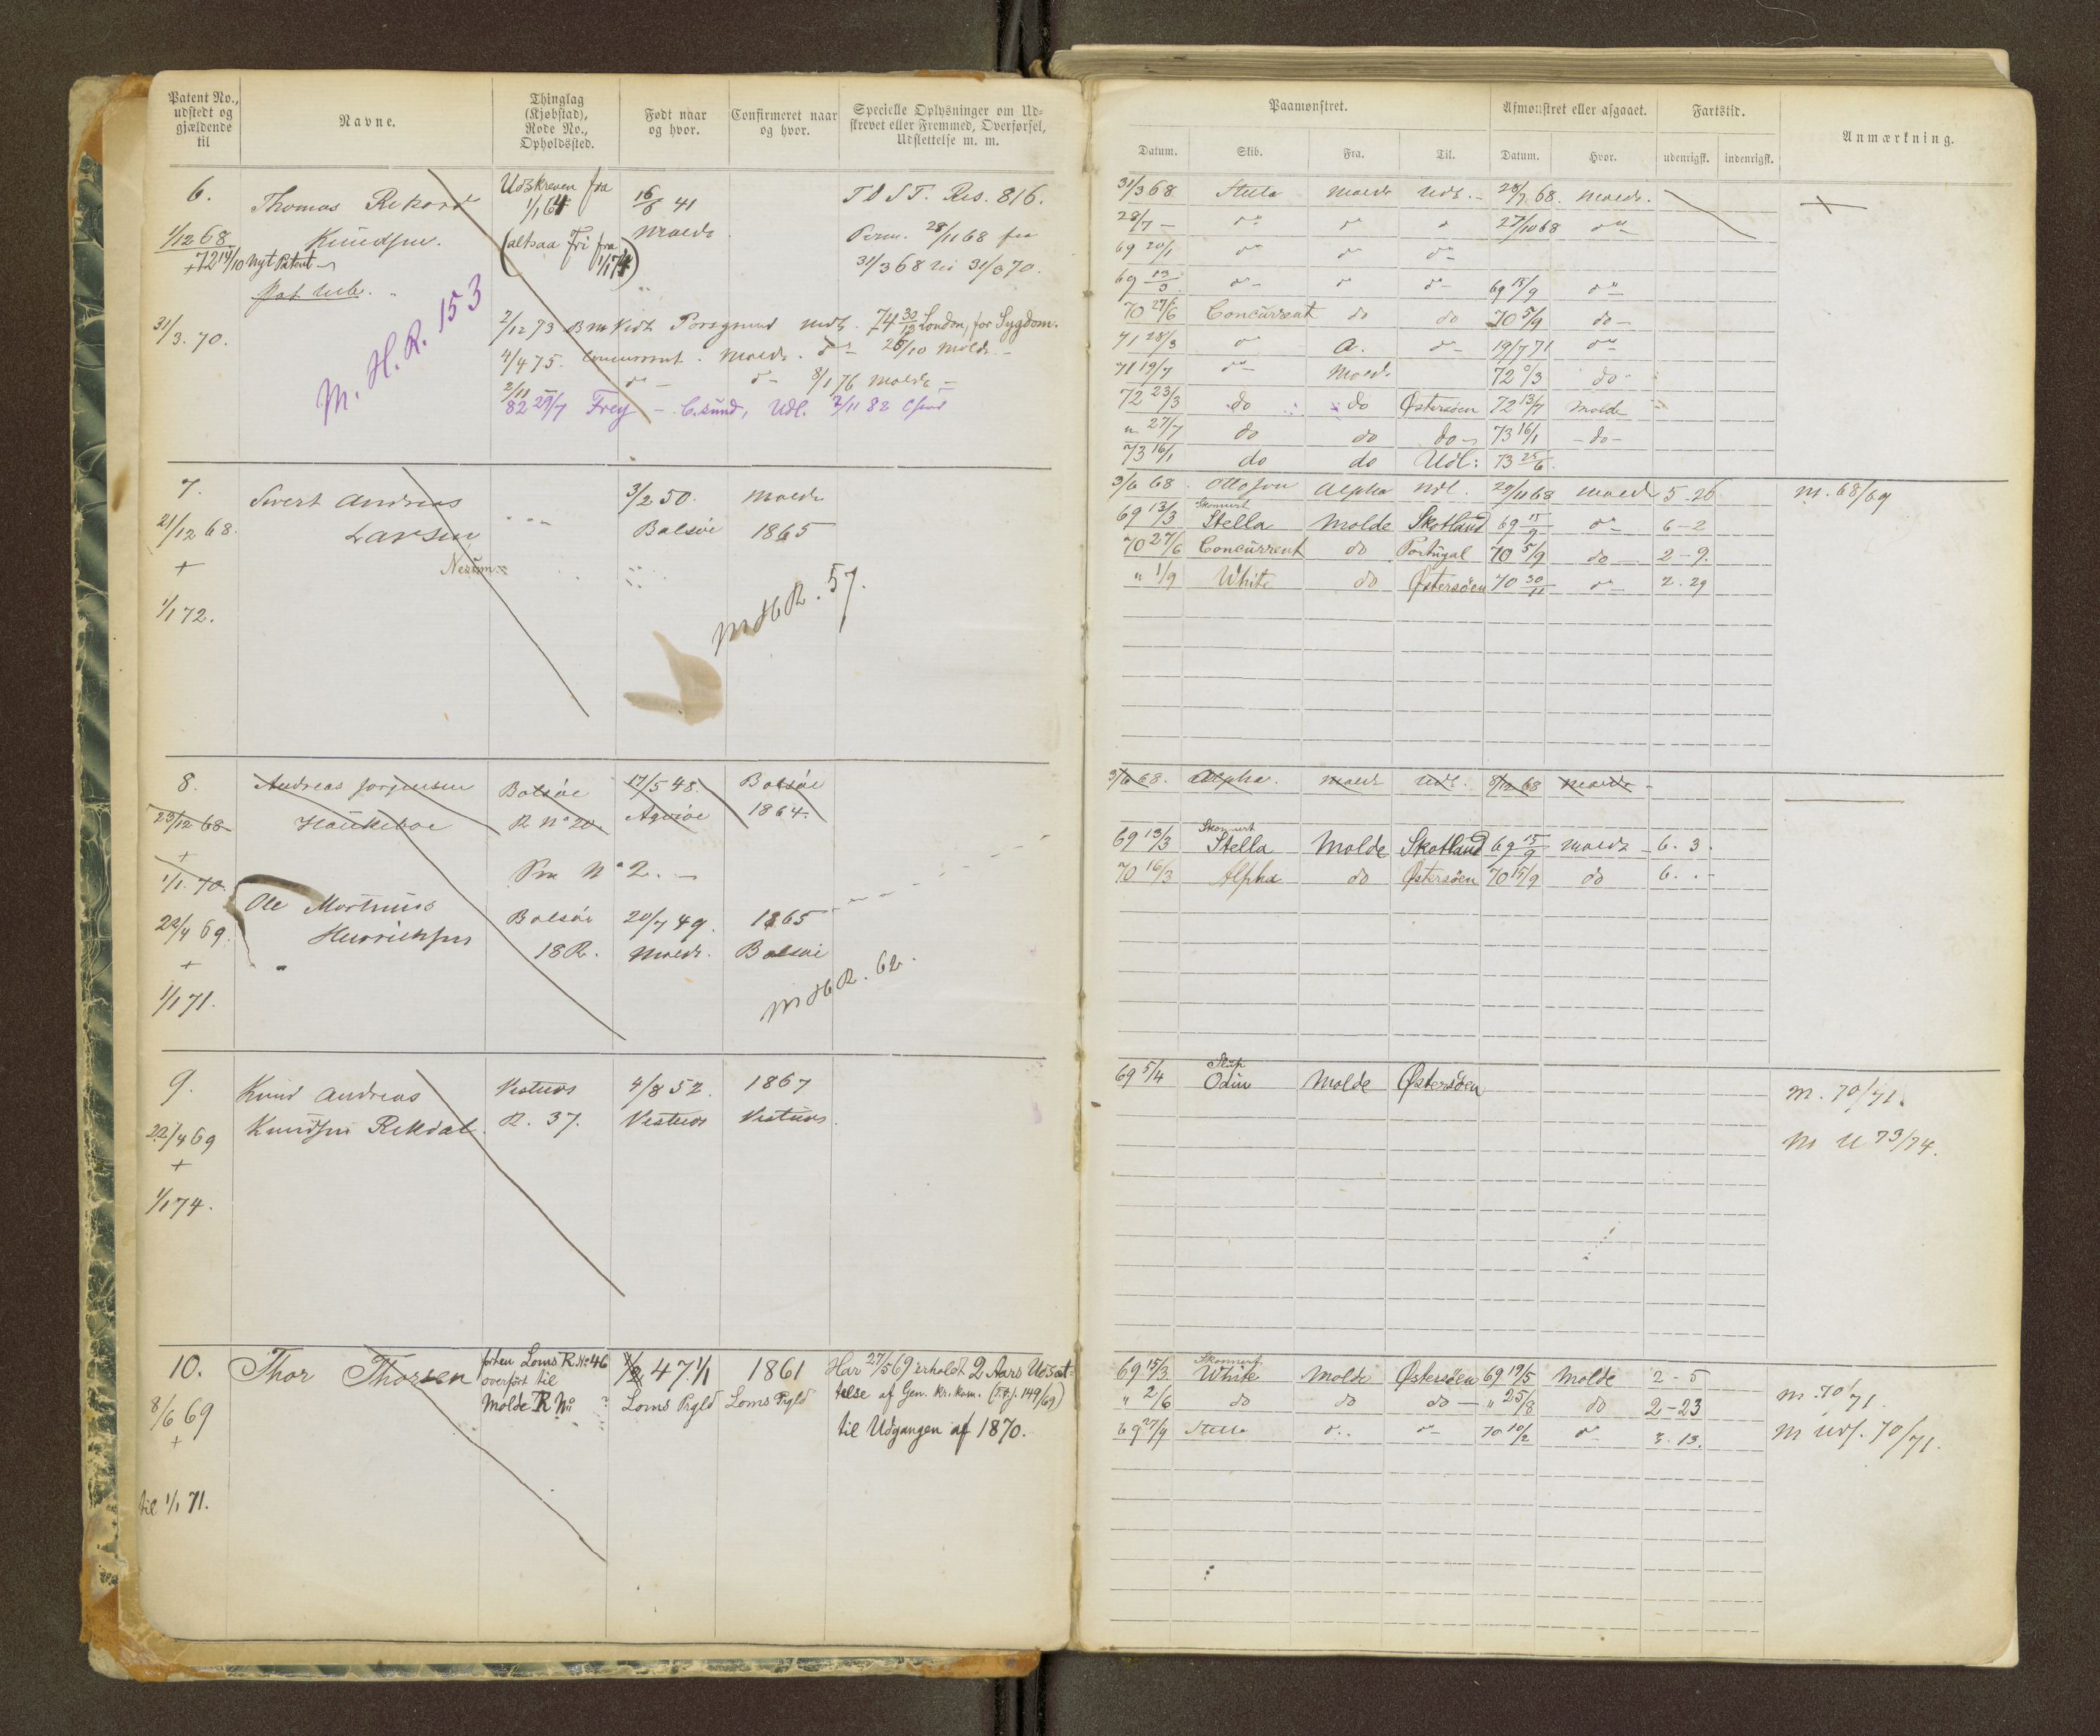 Patent No., udstedt og gjældende til
Navne.
Thinglag (Kjøbstad), Rode No., Opholdssted.
Født naar og hvor.
Confirmeret naar og hvor.
Specielle Oplysninger om Udskrevet eller Fremmed, Overførsel, Udslettelse m. m.
6.
1/12 68
+ 72 14/10 Nyt Patent
31/3. 70.
Thomas Rekard
Knudsen.
Udskreven fra 1/1 64
(altsaa Fri fra 1/1 74)
16/6 41
Molde
T D S T. Res. 816.
Perm. 28/11 68 fra
31/3 68 til 31/3 70.
M. H. R. 153
2/12 73 Porsgrund Udl. 74 30/12 London, for Sygdom.
4/4 75. Concurrent. Molde. do 26/10 Molde
2/11 do do 8/1 76 Molde
82 29/7 Frey - C.sund, Udl. 2/11 82
7.
21/12 68.
+
1/1 72.
Sivert Andreas
Larsen
3/2 50.
Bolsöe
Molde
1865
M H R. 57.
8.
23/12 68
+
1/1. 70.
Andreas Jørgensen
Haukeboe
Bolsöe
R No 20
17/5 48.
Bolsöe
1864.
No 2.
22/4 69.
+
1/1 71.
Ole Martinus
Henriksen
Bolsöe
18 R.
20/7 49.
Molde.
1865
Bolsöe
M H R. 62.
9.
22/4 69
+
1/1 74.
Knud Andreas
Knudsen Rekdal.
Vestnes
R. 37.
4/8 52.
Vestnes
1867
Vestnes
10.
8/6 69
+
til 1/1 71.
Thor Thorsen
forhen Loms R. No 46
overført til
Molde R No ?
47 1/1
Loms Prgld
1861
Loms Prgld
Har 27/5 69 erholdt 2 Aars Udsættelse af Gen. Kr. kom. (T. g. j. 149/69)
til Udgangen af 1870.
Paamønstret.
Afmønstret eller afgaaet.
Fartstid.
Anmærkning.
Datum. Skib. Fra. Til. Datum. Hvor. udenrigsk. indenrigsk.
31/3 68 Stella Molde Udl. 28/7 68. Molde.
28/7 — do do do 27/10 68 do
69 20/1 do do do
69 13/3 do do do 69 15/9 do
70 27/6 Concurrent do do 70 5/9 do
71 28/3 do A. do 19/7 71 do
71 19/7 do Molde 72 9/3 do
72 23/3 do do Østersöen 72 13/7 Molde
" 27/7 do do do 73 16/1 do
73 16/1 do do Udl: 73 25/6.
3/6 68. Alpha Udl. 29/11 68 Molde 5-26 M. 68/69
69 13/3 Skonnert Stella Molde Skotland 69 15/9 do 6-2
70 27/6 Concurrent do Portugal 70 5/9 do 2-9.
" 1/9 White do Østersöen 70 30/11 do 2.29
3/6 68. Alpha. Molde Udl. 8/12 68 Molde
69 13/3 Skonnert Stella Molde Skotland 69 15/9 Molde 6. 3.
70 16/3 Alpha do Østersöen 70 15/9 do 6. .
69 5/4 Slup Odin Molde Østersöen
M. 70/71.
M U 73/74.
69 15/3 Skonnert White Molde Østersöen 69 19/5 Molde 2-5
" 2/6 do do do " 25/8 do 2-23 M. 70/71
69 27/9 Stella do do 70 10/2 do 3. 13. M Uds. 70/71.